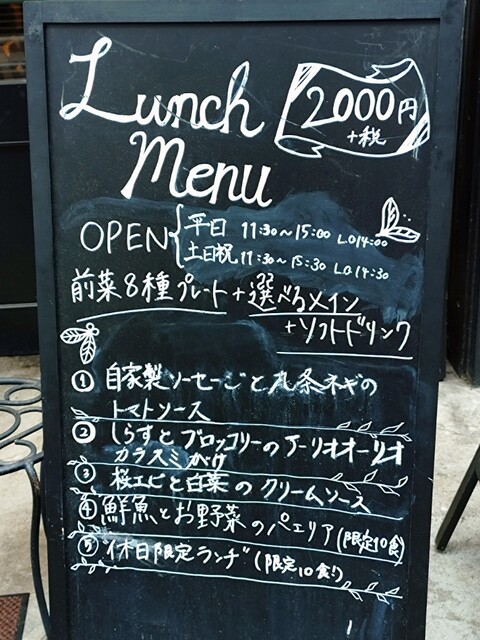 Lunch
2000円
+税
Menu
OPEN
平日 11:30~15:00 L.O14:00
土日祝 11:30~15:30 L.O14:30
前菜8種プレート+選べるメイン
+ソフトドリンク
① 自家製ソーセージと九条ネギの
トマトソース
② しらすとブロッコリーのアーリオオーリオ
カラスミがけ
③ 桜エビと白菜のクリームソース
④ 鮮魚とお野菜のパエリア(限定10食)
⑤ 休日限定ランチ(限定10食!)